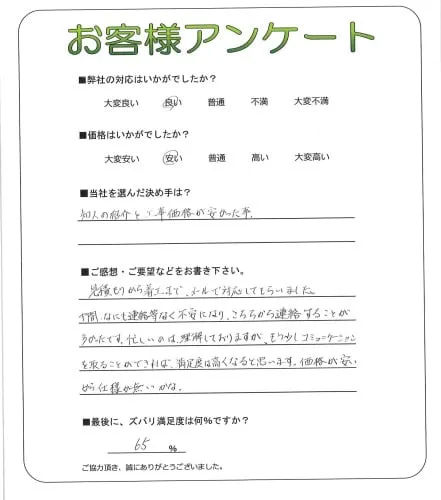 お客様アンケート
■弊社の対応はいかがでしたか?
大変良い 良い 普通 不満 大変不満
■価格はいかがでしたか?
大変安い 安い 普通 高い 大変高い
■当社を選んだ決め手は?
知人の紹介と工事価格が安かった事。
■ご感想・ご要望などをお書き下さい。
見積もりから着工まで、メールで対応してもらいました。
間、なにも連絡等なく不安になり、こちらから連絡することが
多かたです。忙しいのは、理解しておりますが、もう少しコミュニケーション
を取ることができれば、満足度は高くなると思います。価格が安い
から仕様が無いかな。
■最後に、ズバリ満足度は何%ですか?
65 %
ご協力頂き、誠にありがとうございました。